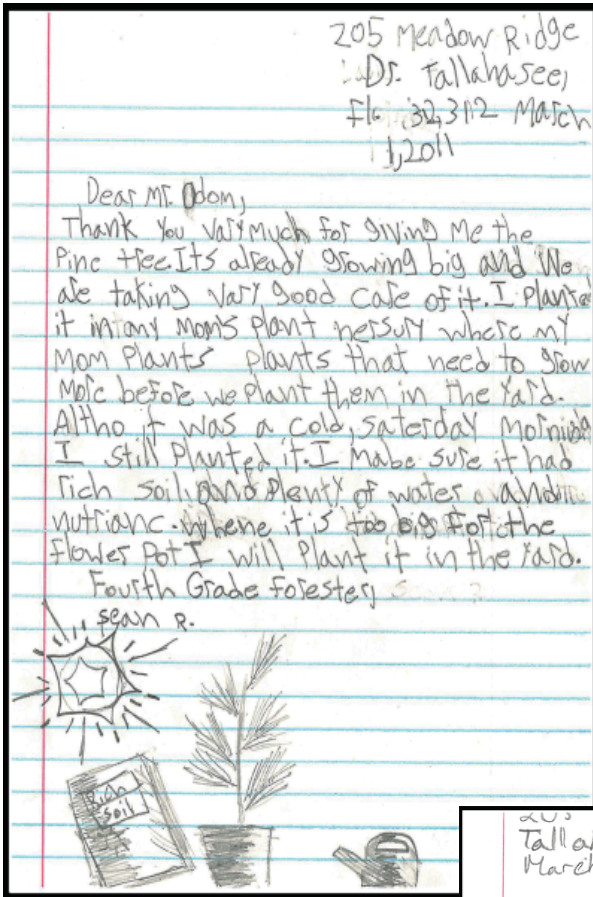 205 Meadow Ridge
Dr. Tallahasee,
Fl. 32,312 March
1,2011
Dear Mr. Odom,
Thank You vary much for giving Me the
Pine tree. Its already growing big and We
are taking vary good care of it. I Planted
it in my Mom's Plant nersury where my
Mom Plants plants that need to grow
More before we Plant them in the Yard.
Altho it was a cold, saterday morning
I still Planted it. I Mabe sure it had
rich soil, and Plenty of water and
nutrianc. Whene it is too big For the
flower Pot I will Plant it in the Yard.
Fourth Grade Forester,
Sean R.
Rich
Soil
205
Talla
March